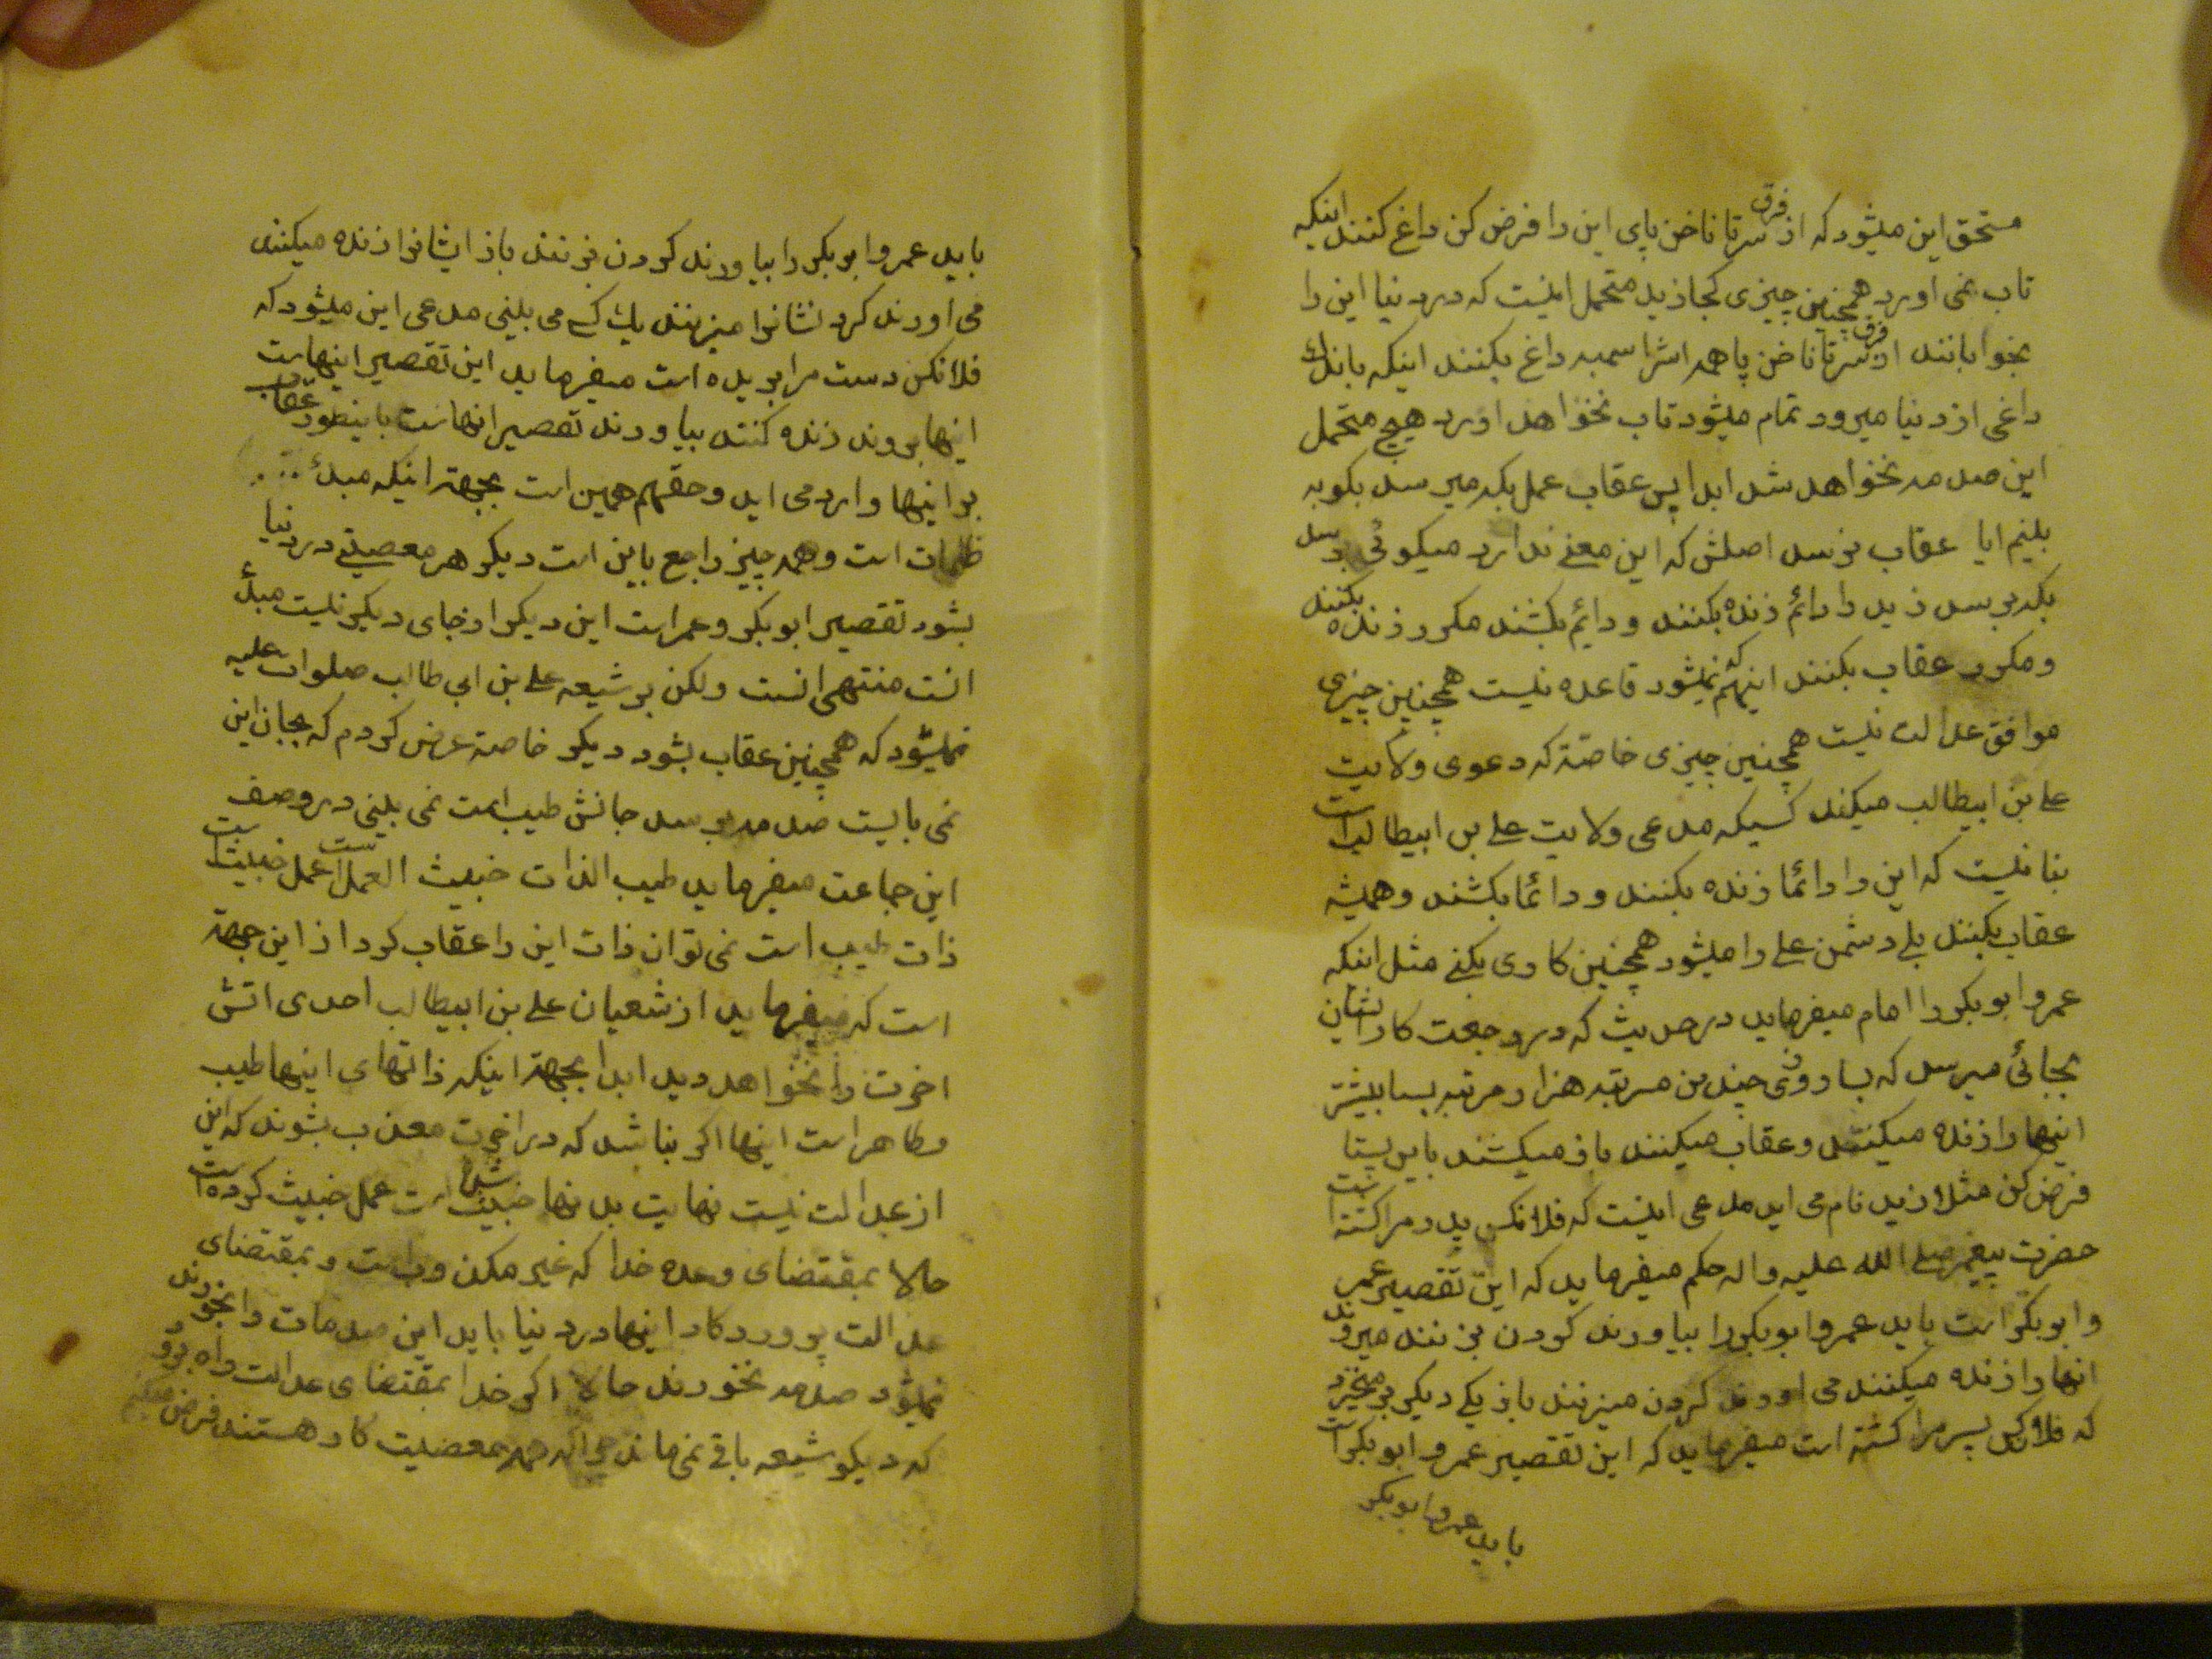 مستحق این میشود که از فرق سر تا ناخن پای این را فرض کن داغ کنند اینکه
تاب نمی اورد همچنین چیزی کجا زید متحمل اینست که در دنیا این را
بخوابانند از فرق سر تا ناخن پا همه اش را سمبه داغ بکنند اینکه باندك
داغی از دنیا میرود تمام میشود تاب نخواهد اورد هیچ متحمل
این صدمه نخواهد شد ابدا پس عقاب عمل بکه میرسد بکو به
بلنیم ایا عقاب نرسد اصلش که این معنی ندارد میکوئی برسد
بکه برسد زید را دائم زنده بکنند و دائم بکشند مکرر زنده بکنند
و مکرر عقاب بکنند اینهم که نمیشود قاعده نیست همچنین چیزی
موافق عدالت نیست همچنین چیزی خاصّة که دعوی ولایت
علی بن ابیطالب میکند کسیکه مدعی ولایت علی بن ابیطالب است
بنا نیست که این را دائما زنده بکنند و دائما بکشند و همیشه
عقاب بکنند بلی دشمن علی را میشود همچنین کاری بکنی مثل اینکه
عمر و ابوبکر را امام میفرماید در حدیث که در رجعت کار اشان
بجائی میرسد که بسا روزی چندین مرتبه هزار مرتبه بسا بیشتر
اینها را زنده میکنند و عقاب میکنند باز میکشند باین بستا
فرض کن مثلا زید نام می اید مدعی اینست که فلانکس پدر مرا کشته است
حضرت پیغمبر صلی الله علیه و اله حکم میفرماید که این تقصیر عمر
و ابوبکر است باید عمر و ابوبکر را بیاورند کردن بزنند میروند
انها را زنده میکنند می اورند کردن میزنند باز یکی دیکر بر میخیزد
که فلان کس پسر مرا کشته است میفرماید که این تقصیر عمر و ابوبکر است
باید عمر و ابوبکر
باید عمر و ابوبکر را بیاورند کردن بزنند باز ایشانرا زنده میکنند
می اورند کردنشانرا میزنند یك کسی می بلینی مدعی این میشود که
فلانکس دست مرا بریده است میفرماید این تقصیر اینهاست
اینها بروند زنده کنند بیاورند تقصیر انهاست باینطور عقاب
بر اینها وارد می اید و حقهم همین است بجهة اینکه مبدٔ
ظلمات است و همه چیز راجع باین است دیکر هر معصیتی در دنیا
بشود تقصیر ابوبکر و عمر است این دیکر از جای دیکر نیست مبدٔ
انست منتهی انست ولکن بر شیعه علی بن ابی طالب صلوات علیه
نمیشود که همچنین عقاب بشود دیکر خاصة عرض کردم که بجان این
نمی بایست صدمه برسد جانش طیب است نمی بلینی در وصف
این جماعت میفرماید طیب الذات خبیث العمل است عمل خبیث است
ذات طیب است نمی توان ذات این را عقاب کرد از این جهة
است که میفرماید از شعیان علی بن ابیطالب احدی اتش
اخرت را نخواهد دید ابدا بجهة اینکه ذاتهای اینها طیب
و طاهر است اینها اکر بنا شد که در اخرت معذب بشوند که این
از عدالت نیست نهایت بدنها خبیث شد است عمل خبیث کرده است
حالا بمقتضای وعده خدا که غیر مکذوب است و بمقتضای
عدالت پرورد کار اینها در دنیا باید این صدمات را بخورند
نمیشود صدمه نخورند حالا اکر خدا بمقتضای عدالت راه برود
که دیکر شیعه باقی نمی ماند چرا که همه معصیت کار هستند فرض